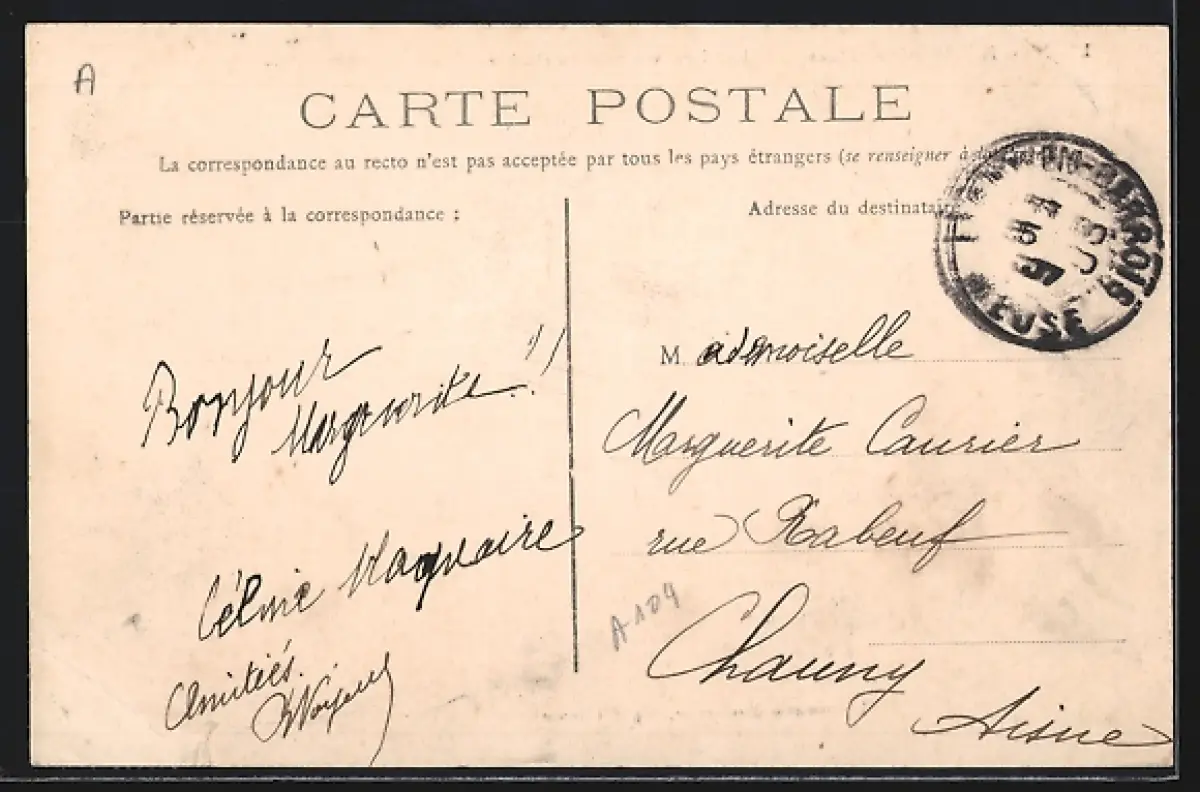 A
CARTE POSTALE
La correspondance au recto n'est pas acceptée par tous les pays étrangers (se renseigner à
Partie réservée à la correspondance :
Adresse du destinataire
MEUSE
Bonjour
Marguerite !!
Céline Maquaire
Amitiés.
Mademoiselle
Marguerite Caurier
rue Rabeuf
Chauny
Aisne
A109